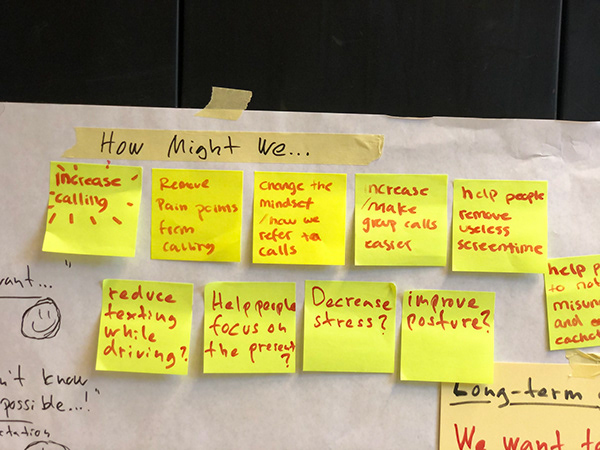 How Might We...
increase
calling
Remove
Pain points
from
calling
change the
mindset
/how we
refer to
calls
increase
/make
group calls
easier
help people
remove
useless
screentime
help p
to not
misun
and e
reduce
texting
while
driving?
Help people
focus on
the present
?
Decrease
stress?
improve
posture?
want..."
n't know
possible...!"
tation
Long-term
We want to